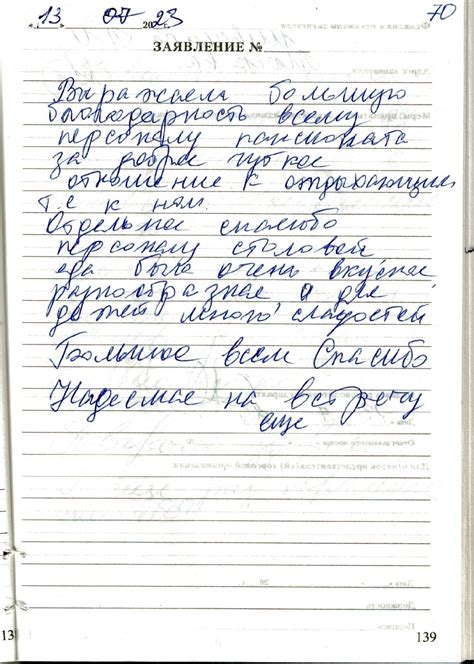 70
13 07 2023
ЗАЯВЛЕНИЕ №
Выражаем большую
благодарность всему
персоналу пансионата
за доброе чуткое
отношение к отдыхающим
т.е к нам.
Отдельное спасибо
персоналу столовой
еда была очень вкусная
разнообразная а для
детей много сладостей
Большое всем Спасибо
Надеемся на встречу
еще
13
139